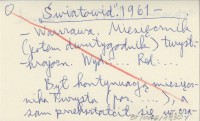 "Światowid" 1961 -
- Warszawa. Miesięcznik
(potem dwutygodnik) turyst-
krajozn. Wyd.... Red....
Był kontynuacją miesięcz-
nika Turysta (por. ....), a
sam przekształcił się